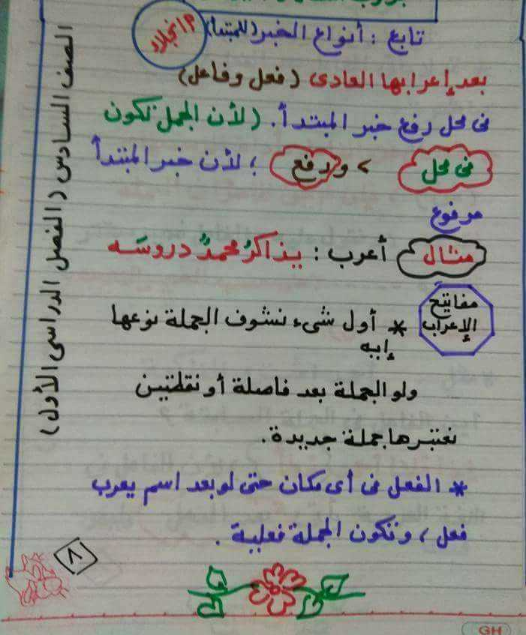 تابع : أنواع الخبر (للمبتدأ)
م/نجلاء
بعد إعرابها العادى (فعل وفاعل)
فى محل رفع خبر المبتدأ. (لأن الجمل تكون
فى محل > ورفع ؛ لأن خبر المبتدأ
مرفوع
مثال أعرب : يذاكرُ محمدٌ دروسَه
مفاتيح الإعراب
* أول شىء نشوف الجملة نوعها
إيه
ولو الجملة بعد فاصلة أو نقطتين
نعتبرها جملة جديدة.
* الفعل فى أى مكان حتى لو بعد اسم يعرب
فعل ، وتكون الجملة فعلية .
٨
الصف السادس (الفصل الدراسى الأول)
GH